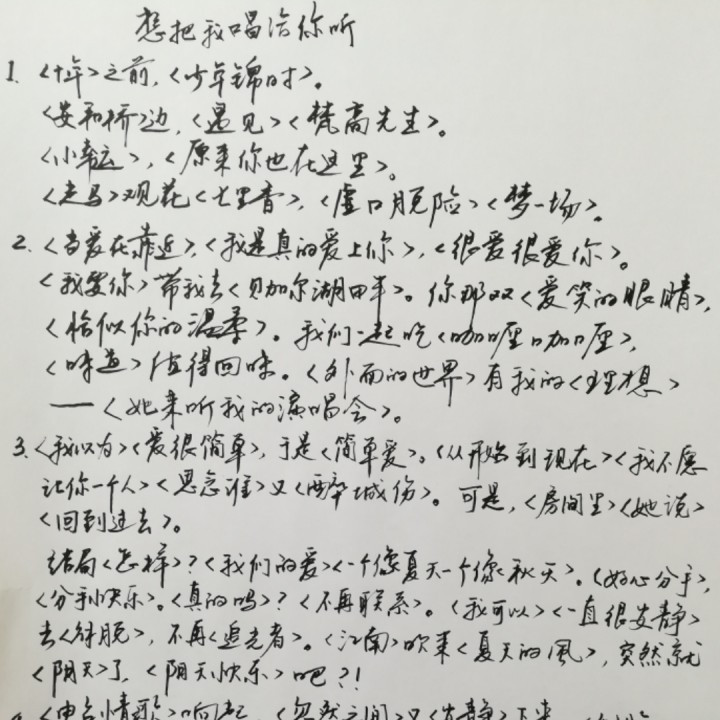 想把我唱给你听
1. <十年>之前,<少年锦时>。
<安和桥>边,<遇见><梵高先生>。
<小幸运>,<原来你也在这里>。
<走马>观花<七里香>,<虚口脱险><梦一场>。
2. <当爱在靠近>,<我是真的爱上你>,<很爱很爱你>。
<我要你>带我去<贝加尔湖畔>。你那双<爱笑的眼睛>,
<恰似你的温柔>。我们一起吃<咖喱咖喱>,
<味道>值得回味。<外面的世界>有我的<理想>
——<她来听我的演唱会>。
3. <我以为><爱很简单>,于是<简单爱>。<从开始到现在><我不愿
让你一个人><思念谁>又<醉城伤>。可是,<房间里><她说>
<回到过去>。
结局<怎样>?<我们的爱><一个像夏天一个像秋天>。<好心分手>,
<分手快乐>。<真的吗>?<不再联系>。<我可以><一直很安静>
去<解脱>,不再<追光者>。<江南>吹来<夏天的风>,突然就
<阴天>了,<阴天快乐>吧?!
<电台情歌>响起,<忽然之间>又<安静>下来